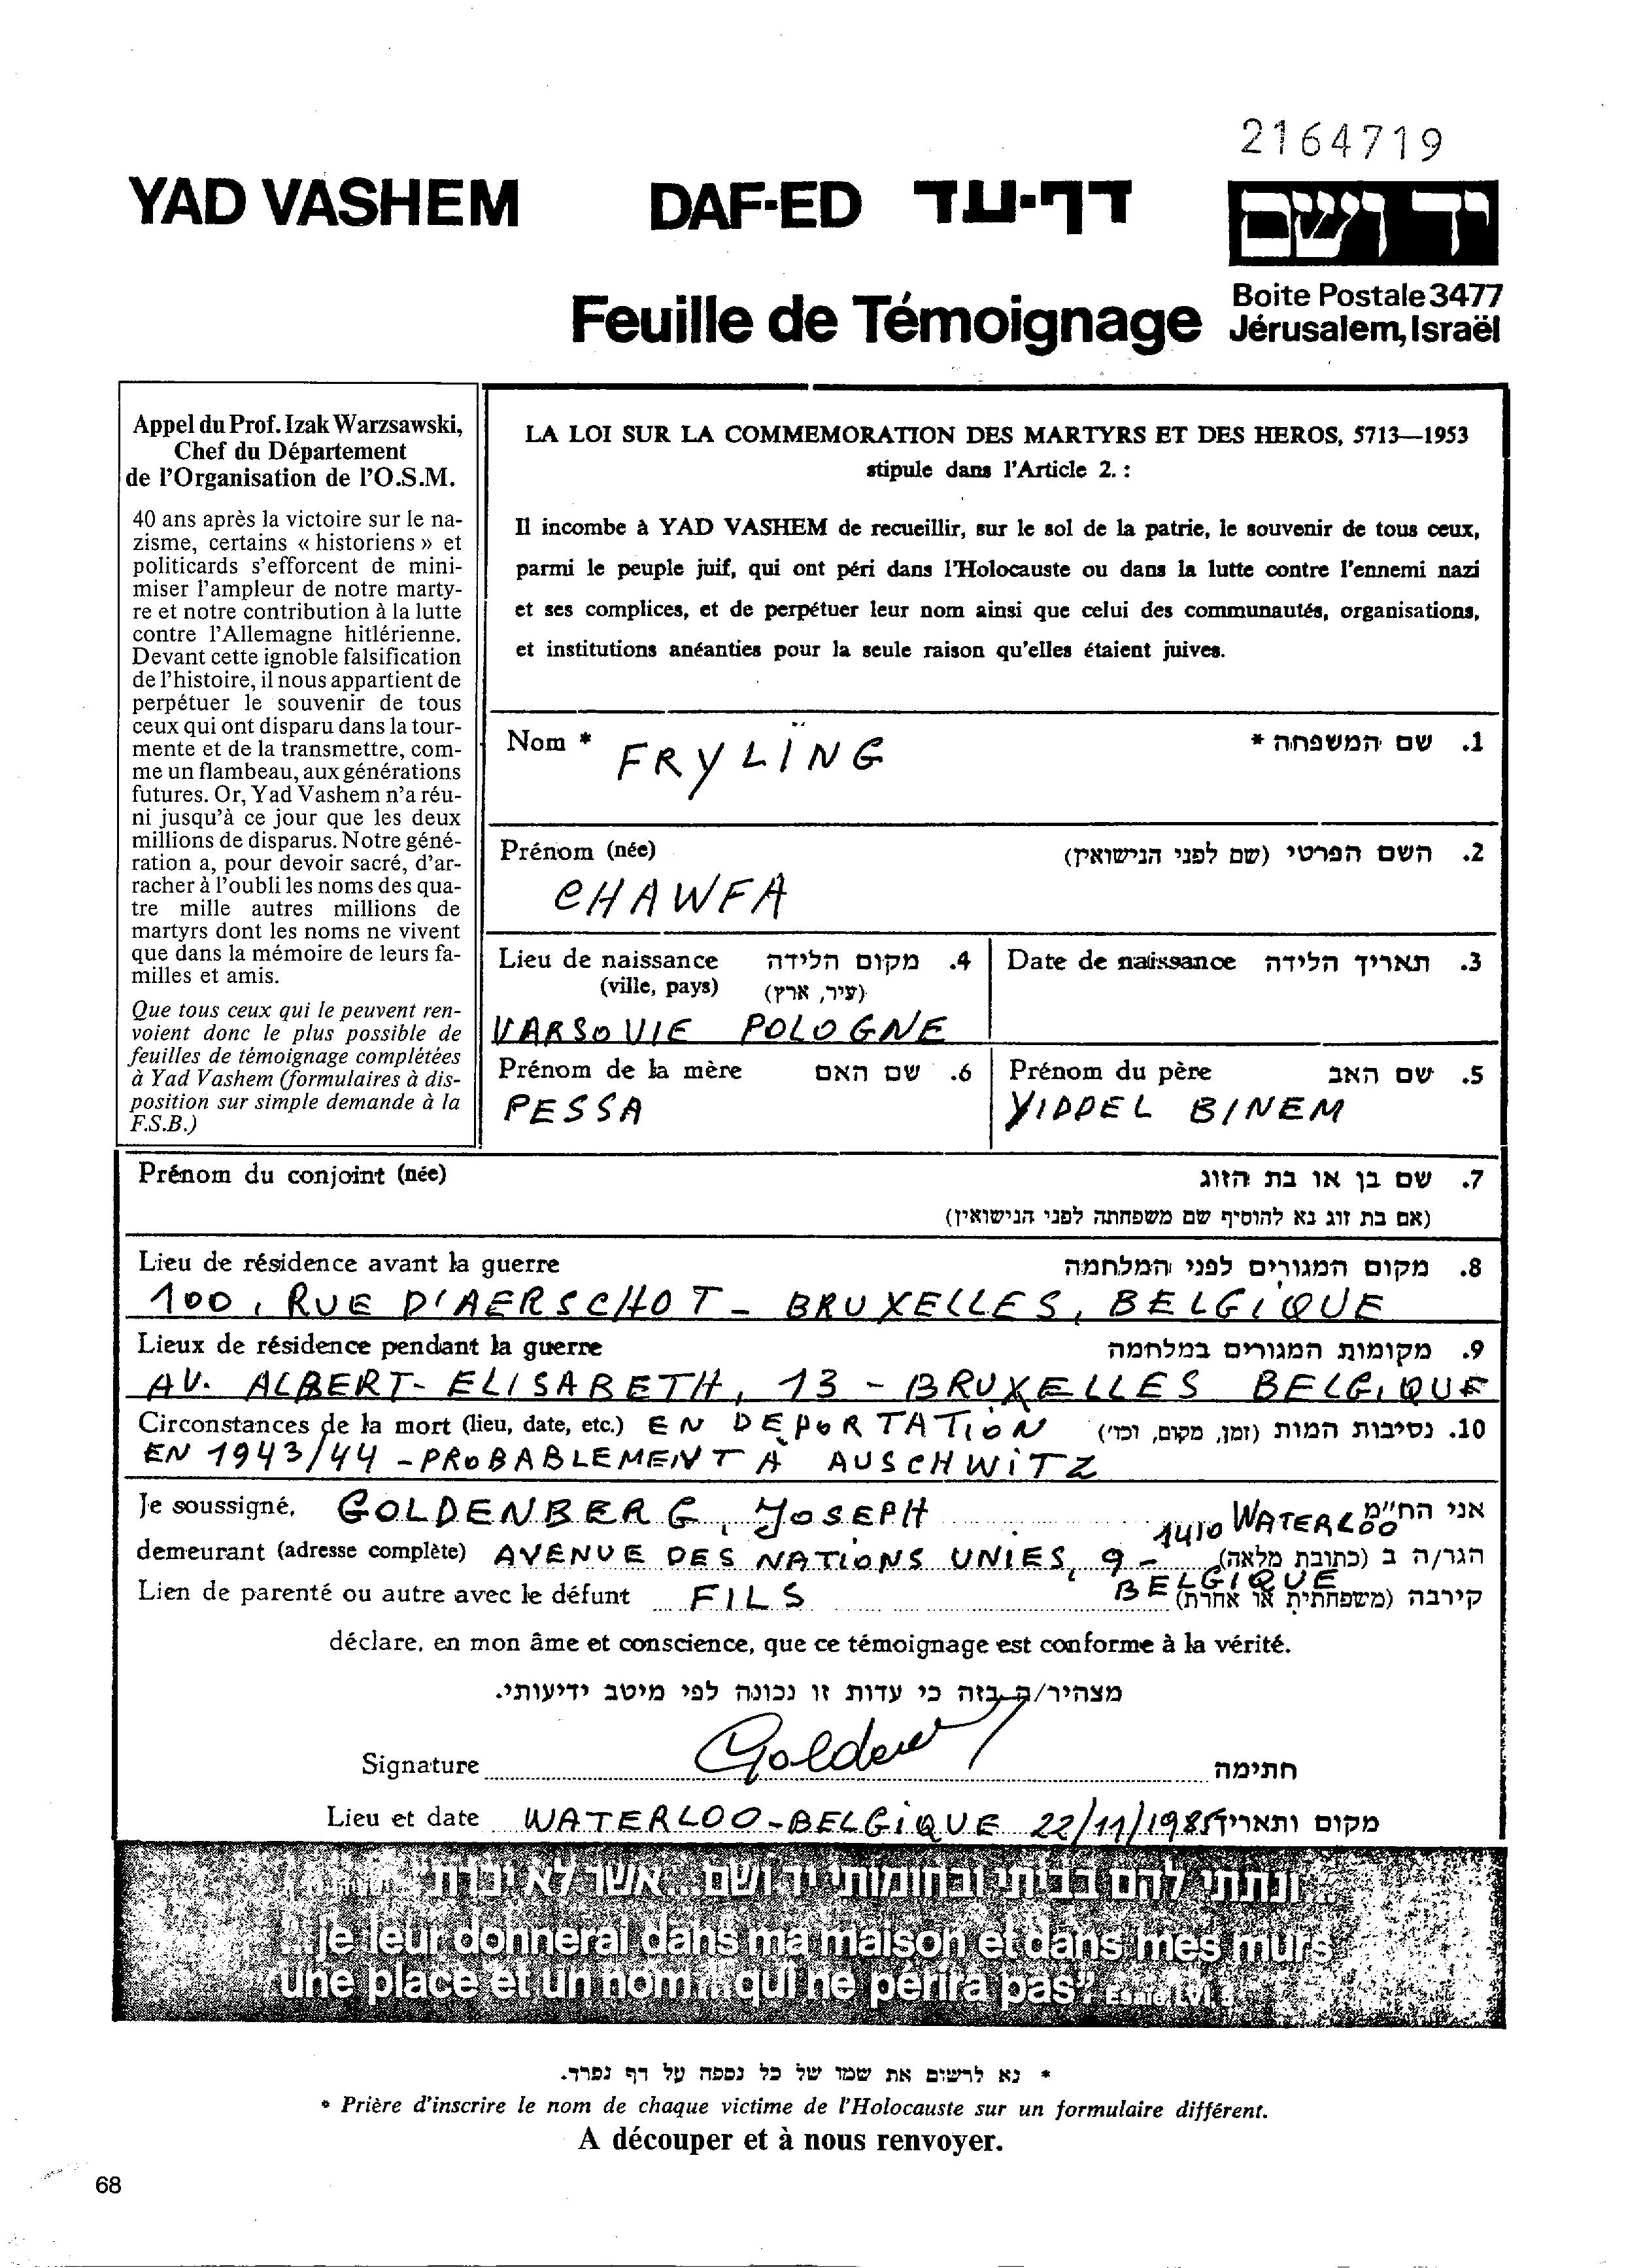 2164719
YAD VASHEM DAF-ED דף-עד יד ושם
Feuille de Témoignage
Boite Postale 3477
Jérusalem, Israël
Appel du Prof. Izak Warzsawski,
Chef du Département
de l'Organisation de l'O.S.M.
40 ans après la victoire sur le na-
zisme, certains « historiens » et
politicards s'efforcent de mini-
miser l'ampleur de notre marty-
re et notre contribution à la lutte
contre l'Allemagne hitlérienne.
Devant cette ignoble falsification
de l'histoire, il nous appartient de
perpétuer le souvenir de tous
ceux qui ont disparu dans la tour-
mente et de la transmettre, com-
me un flambeau, aux générations
futures. Or, Yad Vashem n'a réu-
ni jusqu'à ce jour que les deux
millions de disparus. Notre géné-
ration a, pour devoir sacré, d'ar-
racher à l'oubli les noms des qua-
tre mille autres millions de
martyrs dont les noms ne vivent
que dans la mémoire de leurs fa-
milles et amis.
Que tous ceux qui le peuvent ren-
voient donc le plus possible de
feuilles de témoignage complétées
à Yad Vashem (formulaires à dis-
position sur simple demande à la
F.S.B.)
LA LOI SUR LA COMMEMORATION DES MARTYRS ET DES HEROS, 5713—1953
stipule dans l'Article 2. :
Il incombe à YAD VASHEM de recueillir, sur le sol de la patrie, le souvenir de tous ceux,
parmi le peuple juif, qui ont péri dans l'Holocauste ou dans la lutte contre l'ennemi nazi
et ses complices, et de perpétuer leur nom ainsi que celui des communautés, organisations,
et institutions anéanties pour la seule raison qu'elles étaient juives.
Nom * 1. שם המשפחה *
FRYLÏNG
Prénom (née) 2. השם הפרטי (שם לפני הנישואין)
CHAWFA
Lieu de naissance 4. מקום הלידה
(ville, pays) (עיר, ארץ)
VARSOVIE POLOGNE
Date de naissance 3. תאריך הלידה
Prénom de la mère 6. שם האם
PESSA
Prénom du père 5. שם האב
YIDDEL BINEM
Prénom du conjoint (née) 7. שם בן או בת הזוג
(אם בת זוג נא להוסיף שם משפחתה לפני הנישואין)
Lieu de résidence avant la guerre 8. מקום המגורים לפני המלחמה
100, RUE D'AERSCHOT - BRUXELLES, BELGIQUE
Lieux de résidence pendant la guerre 9. מקומות המגורים במלחמה
AV. ALBERT-ELISABETH, 13 - BRUXELLES BELGIQUE
Circonstances de la mort (lieu, date, etc.) EN DEPORTATION 10. נסיבות המות (זמן, מקום, וכד')
EN 1943/44 - PROBABLEMENT À AUSCHWITZ
Je soussigné, GOLDENBERG, JOSEPH 1410 WATERLOO אני הח"מ
demeurant (adresse complète) AVENUE DES NATIONS UNIES, 9 - הגר/ה ב (כתובת מלאה)
BELGIQUE
Lien de parenté ou autre avec le défunt FILS קירבה (משפחתית או אחרת)
déclare, en mon âme et conscience, que ce témoignage est conforme à la vérité.
מצהיר/ה בזה כי עדות זו נכונה לפי מיטב ידיעותי.
Signature חתימה
Lieu et date WATERLOO - BELGIQUE 22/11/1985 מקום ותאריך
"...ונתתי להם בביתי ובחומותי יד ושם...אשר לא יכרת"
"...je leur donnerai dans ma maison et dans mes murs
une place et un nom... qui ne périra pas". Esaïe, LVI, 5
* נא לרשום את שמו של כל נספה על דף נפרד.
* Prière d'inscrire le nom de chaque victime de l'Holocauste sur un formulaire différent.
A découper et à nous renvoyer.
68